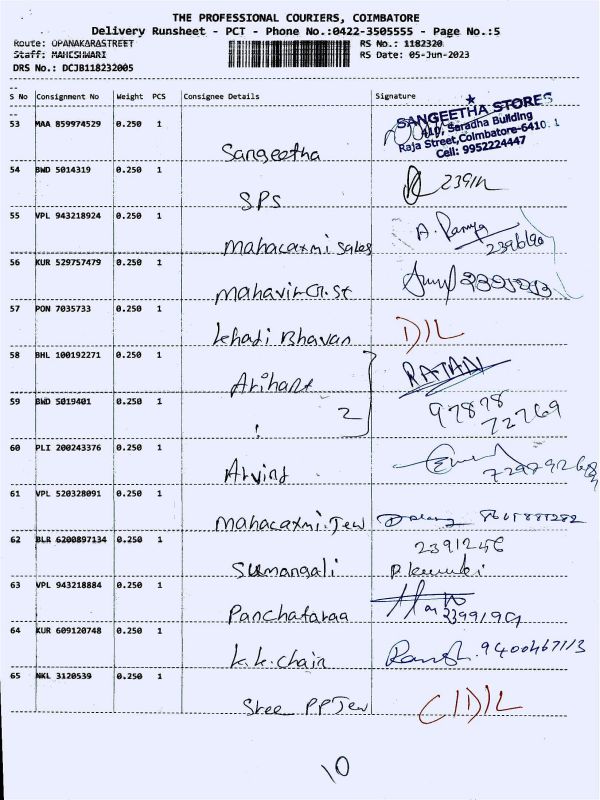 THE PROFESSIONAL COURIERS, COIMBATORE
Delivery Runsheet - PCT - Phone No.:0422-3505555 - Page No.:5
Route: OPANAKARASTREET RS No.: 1182320
Staff: MAHESHWARI RS Date: 05-Jun-2023
DRS No.: DCJB118232005
S No Consignment No Weight PCS Consignee Details Signature
SANGEETHA STORES
410, Saradha Building
Raja Street,Coimbatore-6410 1
Cell: 9952224447
53 MAA 859974529 0.250 1
Sangeetha
54 BWD 5014319 0.250 1
SPS
55 VPL 943218924 0.250 1
mahacaxmi sales
56 KUR 529757479 0.250 1
mahavir
57 PON 7035733 0.250 1
khadi Bhavan D/L
58 BHL 100192271 0.250 1
Arihant RATAN
59 BWD 5019401 0.250 1
2 97878
72769
60 PLI 200243376 0.250 1
Arvind
61 VPL 520328091 0.250 1
mahacaxmi.Jew
62 BLR 6200897134 0.250 1 2391246
sumangali
63 VPL 943218884 0.250 1
Panchataraa
64 KUR 609120748 0.250 1
k.k.chain 9400467113
65 NKL 3120539 0.250 1
Shee PPJew C/D/L
10